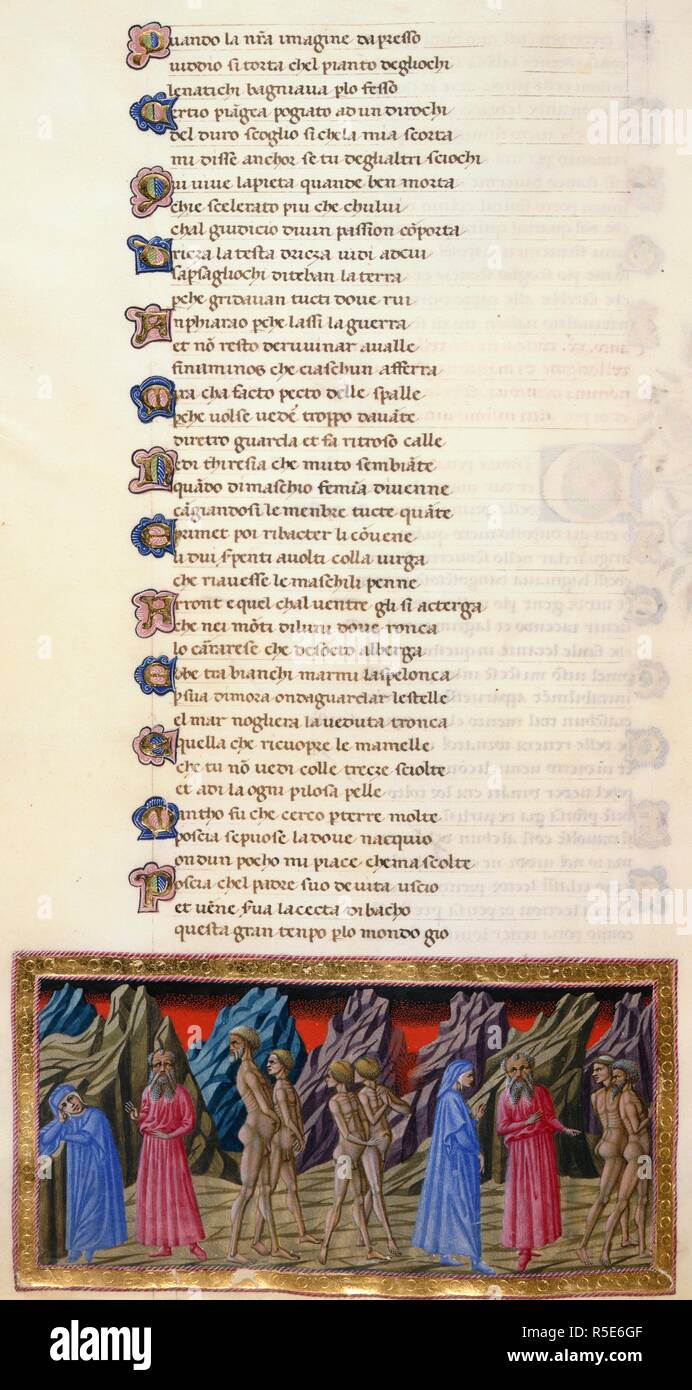 Quando la nr̃a imagine da presso
viddio si torta chel pianto degliochi
le natichi bagniava p̱lo fesso
Certio piãgea pogiato ad un dirochi
del duro scoglio si chela mia scorta
mi disse anchor se tu deglialtri sciochi
Qui vive lapieta quande ben morta
chie scelerato piu che chului
chal giudicio divin passion cõporta
Driçça la testa driçça vidi adcui
sap̱sagliochi diteban la terra
p̱che gridavan tucti dove rui
Anphiarao p̱che lassi la guerra
et nõ resto deruvinar avalle
finuminos che ciaschun afferra
Mira cha facto pecto delle spalle
p̱che volse vedẽ troppo davãte
diretro guarda et fa ritroso calle
Vedi thiresia che muto sembiãte
quãdo di maschio femĩa divenne
cãgiandosi le menbre tucte quãte
Et primet poi ribacter li cõvene
li dui serpenti avolti colla virga
che riavesse le maschili penne
Arront e quel chal ventre gli si acterga
che nei mõti diluni dove ronca
lo cãrarese che desocto alberga
Ebbe tra bianchi marmi laspelonca
p̱sua dimora ondaguardar lestelle
el mar nogliera la veduta tronca
Et quella che ricuopre le mamelle
che tu nõ vedi colle treççe sciolte
et adi la ogni pilosa pelle
Mantho fu che cerco p̱terre molte
poscia sepuose la dove nacquio
ondun pocho mi piace chema scolte
Poscia chel padre suo de vita uscio
et vẽne serva lacecta di bacho
questa gran tenpo p̱lo mondo gio
alamy
Image ID: R5E6GF
www.alamy.com